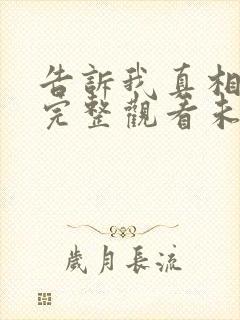 告訴我真相
完整觀看未
歲月長流